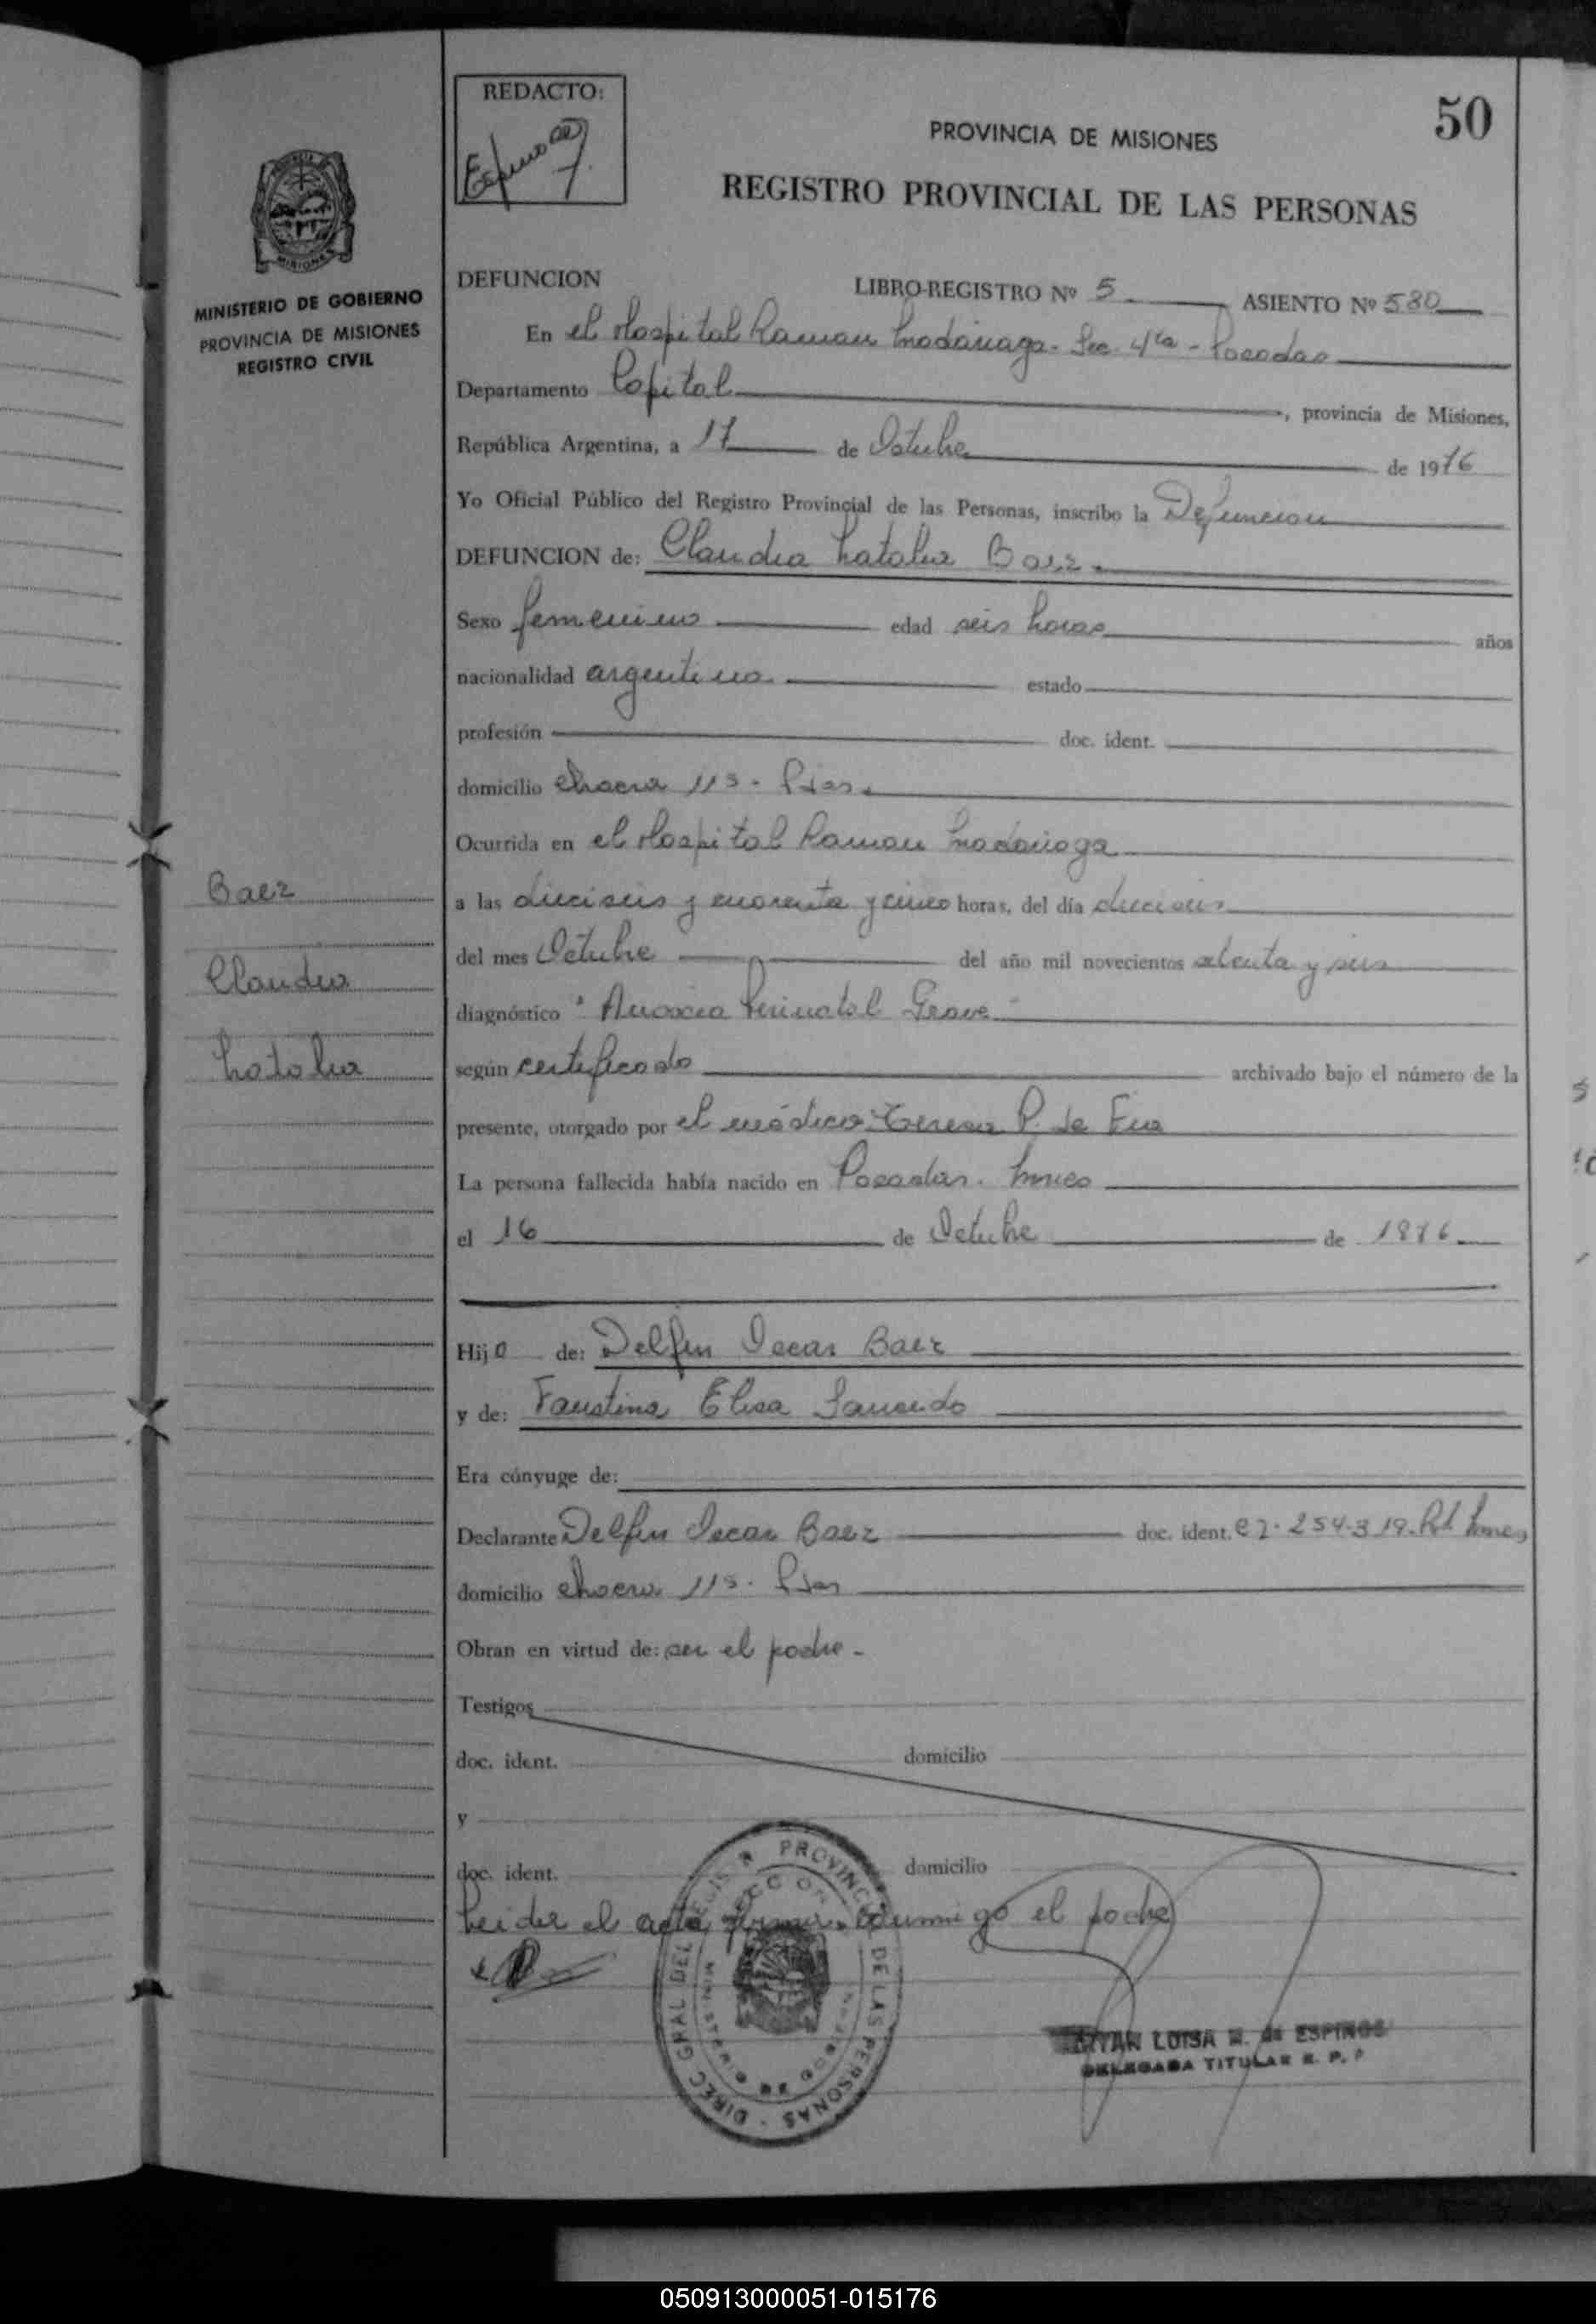 50
REDACTO:
PROVINCIA DE MISIONES
REGISTRO PROVINCIAL DE LAS PERSONAS
MISIONES
MINISTERIO DE GOBIERNO
PROVINCIA DE MISIONES
REGISTRO CIVIL
DEFUNCION LIBRO-REGISTRO Nº 5 ASIENTO Nº 580
En el Hospital Ramon Madariaga - Sec. 4ta - Posadas
Departamento Capital, provincia de Misiones,
República Argentina, a 17 de Octubre de 1976
Yo Oficial Público del Registro Provincial de las Personas, inscribo la Defuncion
DEFUNCION de: Claudia Natalia Baez
Sexo femenino edad seis horas años
nacionalidad argentina estado
profesión doc. ident.
domicilio chacra 113 - Pdas
Ocurrida en el Hospital Ramon Madariaga
Baez
a las dieciseis y cuarenta y cinco horas, del día dieciseis
del mes Octubre del año mil novecientos setenta y seis
Claudia
diagnóstico "Anoxia Perinatal Grave"
Natalia
según certificado archivado bajo el número de la
presente, otorgado por el médico: Teresa P. de
La persona fallecida había nacido en Posadas. Mnes
el 16 de Octubre de 1976
Hija de: Delfin Oscar Baez
y de: Faustina Elisa
Era cónyuge de:
Declarante Delfin Oscar Baez doc. ident. 254.319. Pol Mnes
domicilio chacra 113. Pdas
Obran en virtud de: ser el padre -
Testigos
doc. ident. domicilio
y
doc. ident. domicilio
Leida el acta firma conmigo el padre
DIREC GRAL DEL REGIS PROVINCIAL DE LAS PERSONAS
LUISA M. de ESPINOS
DELEGADA TITULAR R. P. P
050913000051-015176